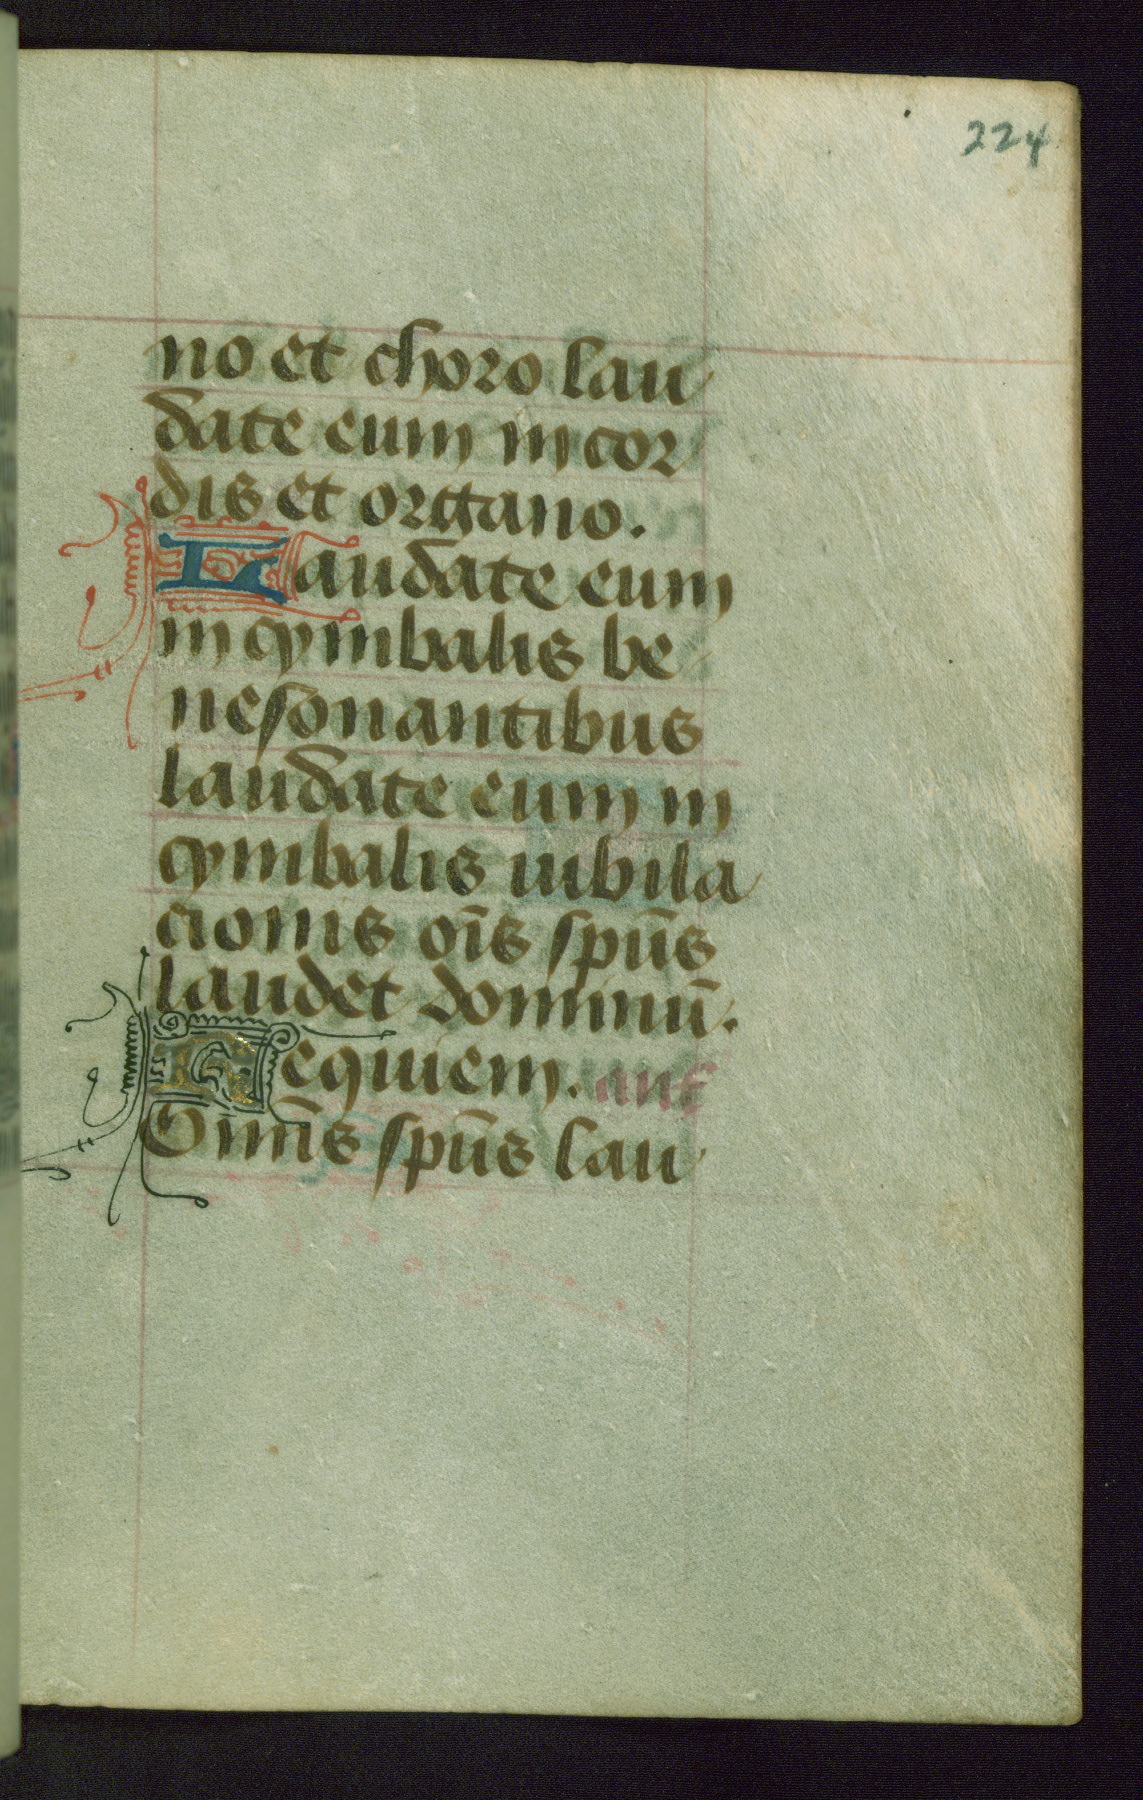 224
no et choro lau
date eum in cor
dis et organo.
Laudate eum
in cymbalis be
nesonantibus
laudate eum in
cymbalis iubila
cionis oīs spūs
laudet dominū.
Requiem. anƭ
Omīs spūs lau